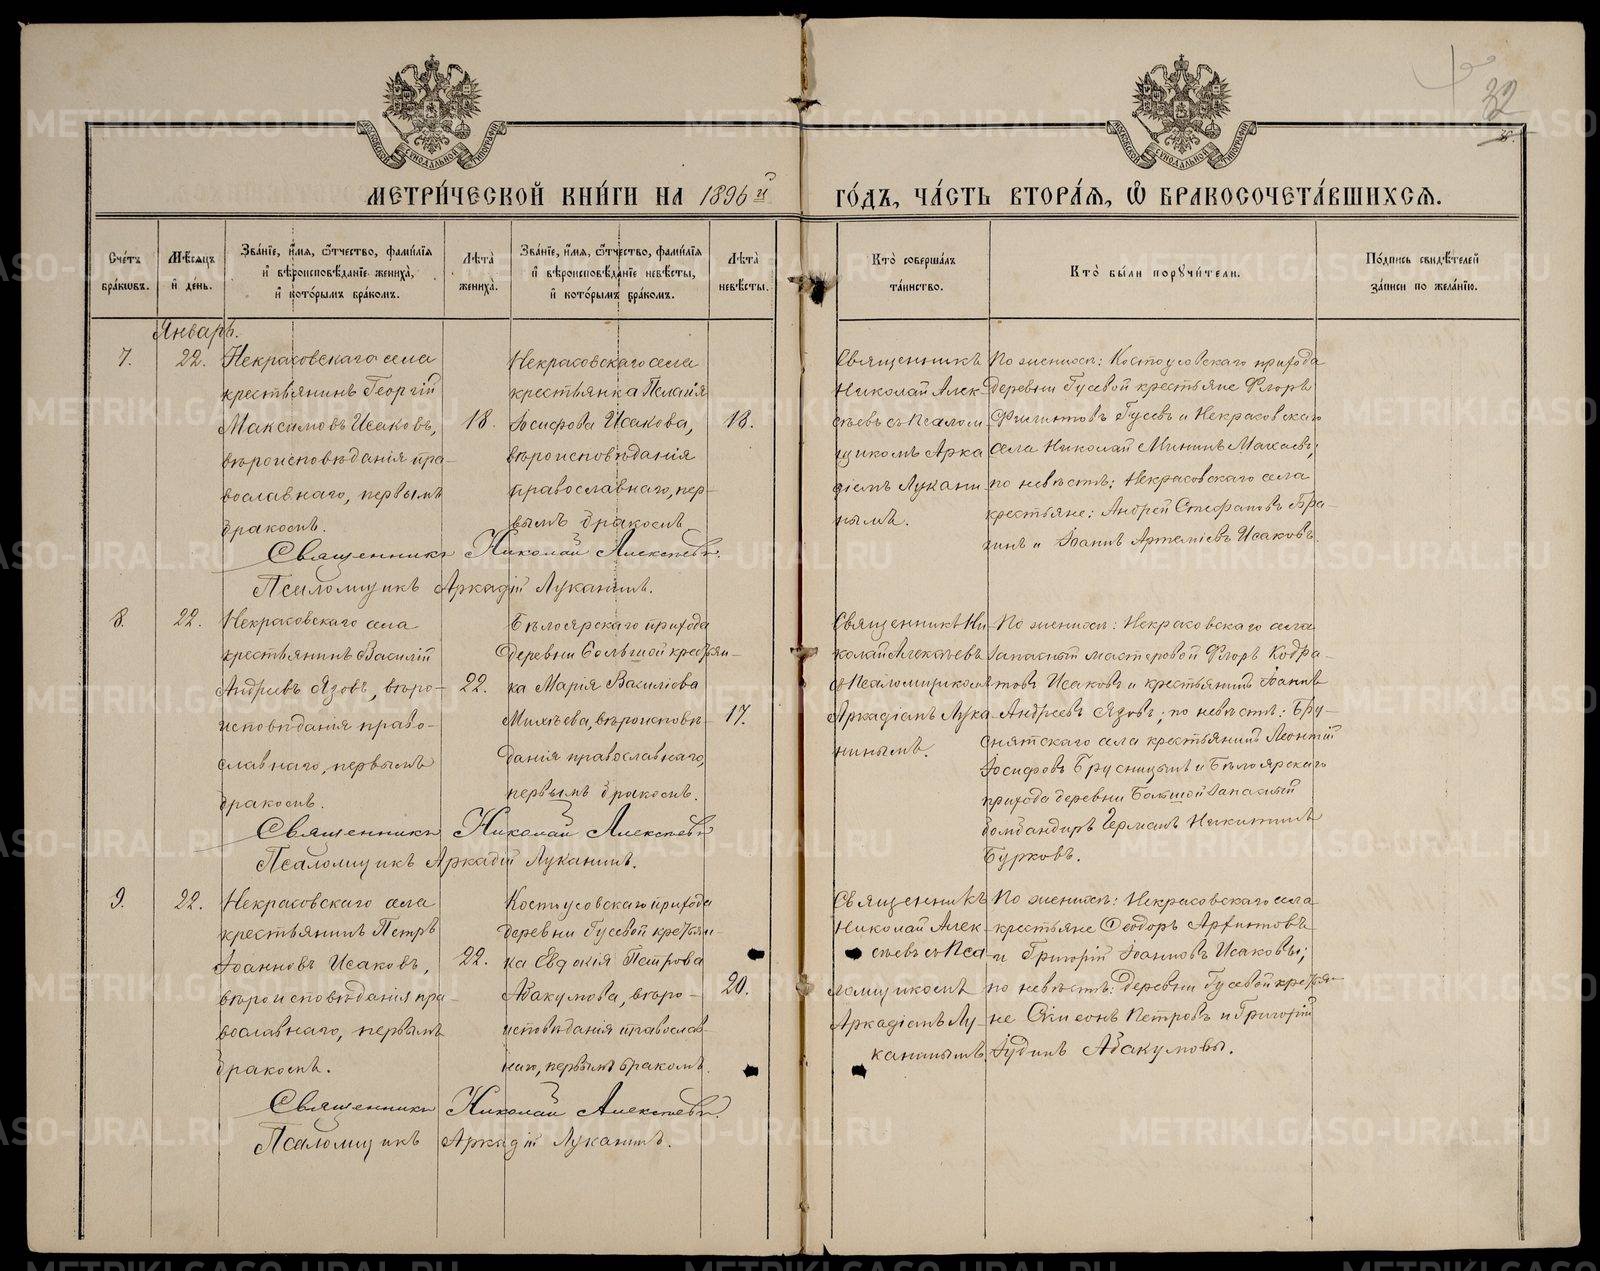 32
МЕТРИ́ЧЕСКОЙ КНИ́ГИ НА 1896й ГО́ДЪ, ЧА́СТЬ ВТОРА́Я, Ѽ БРАКОСОЧЕТА́ВШИХСЯ.
Сче́тъ бра́ковъ.
Мѣ́сяцъ и҆ де́нь.
Зва́нїе, и҆́мя, ѻ҆́тчество, фами́лїя и҆ вѣроисповѣ́данїе жениха̀, и҆ кото́рымъ бра́комъ.
Лѣ́та жениха̀.
Зва́нїе, и҆́мя, ѻ҆́тчество, фами́лїя и҆ вѣроисповѣ́данїе невѣ́сты, и҆ кото́рымъ бра́комъ.
Лѣ́та невѣ́сты.
Кто̀ соверша́лъ та́инство.
Кто̀ бы́ли порꙋчи́тели.
По́дпись свидѣ́телей за́писи по жела́нїю.
Январь.
7.
22.
Некрасовскаго села
крестьянинъ Георгій
Максимовъ Исаковъ,
вѣроисповѣданія пра-
вославнаго, первымъ
бракомъ.
18.
Некрасовскаго села
крестьянка Пелагія
Іосифова Исакова,
вѣроисповѣданія
православнаго, пер-
вымъ бракомъ
18.
Священникъ
Николай Алек-
сѣевъ съ Псалом
щикомъ Арка
діемъ Лукани-
нымъ.
По женихѣ: Костоусовскаго прихода
деревни Гусевой крестьяне Флоръ
Филиповъ Гусевъ и Некрасовскаго
села Николай Мининъ Махаевъ;
по невѣстѣ: Некрасовскаго села
крестьяне: Андрей Стефановъ Бра-
гинъ и Іоаннъ Артеміевъ Исаковъ.
Священникъ Николай Алексѣевъ.
Псаломщикъ Аркадій Луканинъ.
8.
22.
Некрасовскаго села
крестьянинъ Василій
Андреевъ Язовъ, вѣро-
исповѣданія право-
славнаго, первымъ
бракомъ.
22.
Бѣлоярскаго прихода
деревни Большой крестьян-
ка Марія Василіова
Михѣева, вѣроисповѣ-
данія православнаго,
первымъ бракомъ.
17.
Священникъ Ни
колай Алексѣевъ
съ Псаломщикомъ
Аркадіемъ Лука
нинымъ.
По женихѣ: Некрасовскаго села
запасный мастеровой Флоръ Кодра-
товъ Исаковъ и крестьянинъ Іоаннъ
Андреевъ Язовъ; по невѣстѣ: Бру-
снятскаго села крестьянинъ Леонтій
Іосифовъ Брусницынъ и Бѣлоярскаго
прихода деревни Большой запасный
бомбандиръ Германъ Никитинъ
Бурковъ.
Священникъ Николай Алексѣевъ
Псаломщикъ Аркадій Луканинъ.
9.
22.
Некрасовскаго села
крестьянинъ Петръ
Іоанновъ Исаковъ,
вѣроисповѣданія пра-
вославнаго, первымъ
бракомъ.
22.
Костоусовскаго прихода
деревни Гусевой крестьян-
ка Евдокія Петрова
Абакумова, вѣро-
исповѣданія православ-
наго, первымъ бракомъ.
20.
Священникъ
Николай Алек-
сѣевъ съ Пса-
ломщикомъ
Аркадіемъ Лу-
канинымъ.
По женихѣ: Некрасовскаго села
крестьяне Ѳеодоръ Архиповъ
и Григорій Іоанновъ Исаковы;
по невѣстѣ: деревни Гусевой крестья-
не Симеонъ Петровъ и Григорій
Іудинъ Абакумовы.
Священникъ Николай Алексѣевъ.
Псаломщикъ Аркадій Луканинъ.